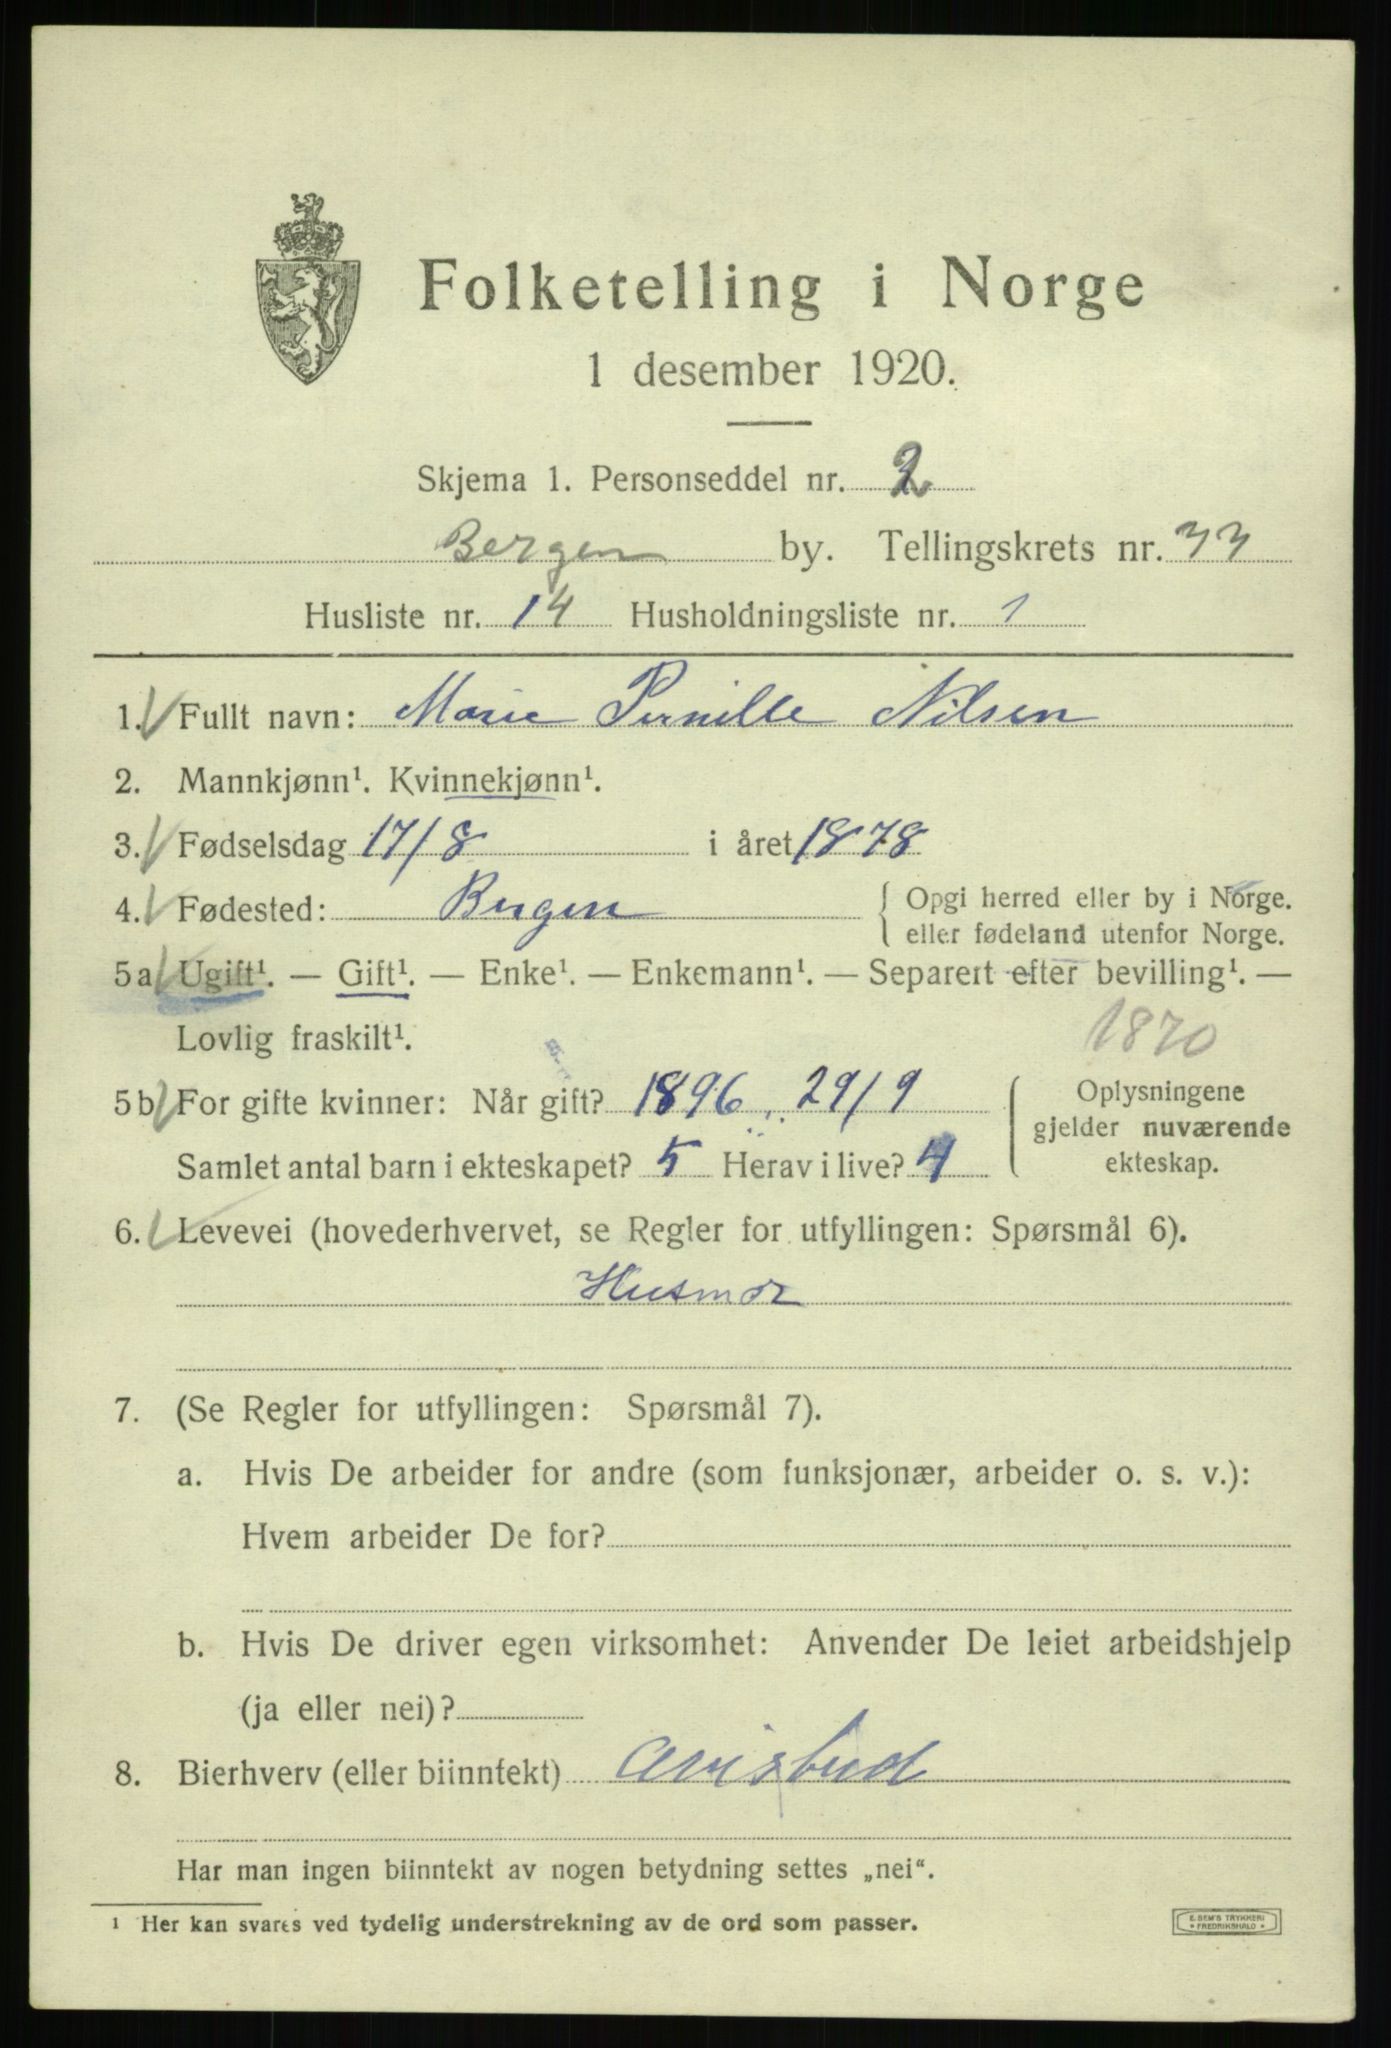 Folketelling i Norge
1 desember 1920.
Skjema 1. Personseddel nr. 2
Bergen by. Tellingskrets nr. 33
Husliste nr. 14 Husholdningsliste nr. 1
1. Fullt navn: Marie Pernille Nilsen
2. Mannkjønn¹. Kvinnekjønn¹.
3. Fødselsdag 17/8 i året 1878
4. Fødested: Bergen { Opgi herred eller by i Norge.
eller fødeland utenfor Norge.
5a Ugift¹. — Gift¹. — Enke¹. — Enkemann¹. — Separert efter bevilling¹. —
Lovlig fraskilt¹. 1870
5b For gifte kvinner: Når gift? 1896 29/9
Samlet antal barn i ekteskapet? 5 Herav i live? 4
{ Oplysningene
gjelder nuværende
ekteskap.
6. Levevei (hovederhvervet, se Regler for utfyllingen: Spørsmål 6).
Husmor
7. (Se Regler for utfyllingen: Spørsmål 7).
a. Hvis De arbeider for andre (som funksjonær, arbeider o. s. v.):
Hvem arbeider De for?
b. Hvis De driver egen virksomhet: Anvender De leiet arbeidshjelp
(ja eller nei)?
8. Bierhverv (eller biinntekt) Avisbud
Har man ingen biinntekt av nogen betydning settes „nei“.
¹ Her kan svares ved tydelig understrekning av de ord som passer.
E. SEM'S TRYKKERI
* FREDRIKSHALD *